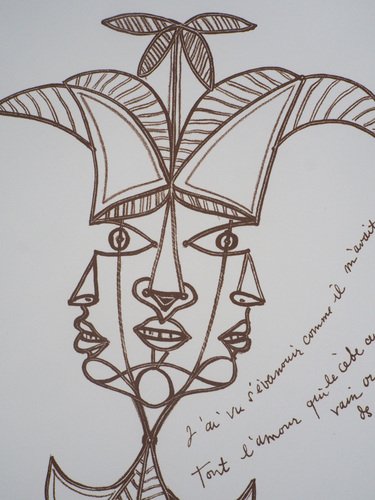 J'ai vu s'évanouir comme il m'avait
Tout l'amour qui le cèle
vain or